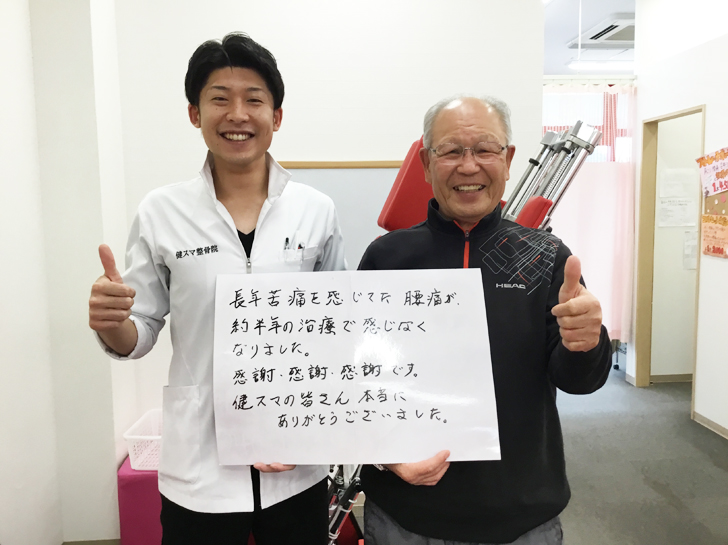 健スマ整骨院
長年苦痛を感じてた 腰痛が、
約半年の治療で 感じなく
なりました。
感謝・感謝・感謝です。
健スマの皆さん 本当に
ありがとうございました。
HEAD